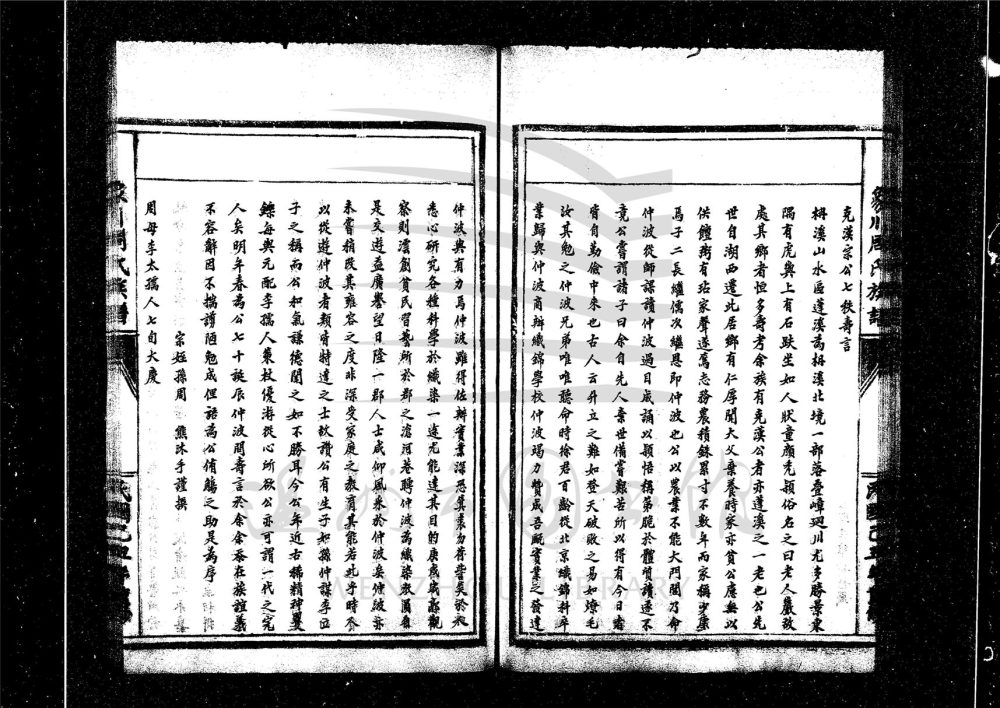 克漢宗公七秩壽言
枏溪山水區蓬溪為枏溪北境一部落疊嶂迴川尤多勝景東
隅有虎輿上有石趺坐如人狀童顏禿頴俗名之曰老人巖故
處其鄉者恒多壽考余族有克漢公者亦蓬溪之一老也公先
世自湖西遷此居鄉有仁厚聞大父棄養時家亦貧公慮無以
供饘粥有玷家聲遂篤志務農積銖累寸不數年而家稱少康
焉子二長繼儒次繼恩即仲波也公以農業不能大門閭乃命
仲波從師課讀仲波過目成誦以穎悟稱弟脆於體質讀遂不
竟公嘗謂諸子曰余自先人棄世備嘗艱苦所以得有今日者
皆自勤儉中來也古人云升立之難如登天破敗之易如燎毛
汝其勉之仲波兄弟唯唯聽命時徐君百齡從北京織錦科卒
業歸與仲波商辦織錦學校仲波竭力贊成吾甌實業之發達
仲波與有力焉仲波雖得佐辦實業深恐冀襄勿替學矣於是
悉心研究各種科學於織染一途尤能達其目的庚歲戚忝觀
察剛澐創貧民習藝所於郡之滄河巷聘仲波為織染教員自
是交遊益廣譽望日隆一郡人士咸仰風采於仲波矣仲波亦
未嘗稍改其雍容之度非深受家庭之教育其能若此乎時又
以從遊仲波者類皆特達之士欽讚公有生子如孫仲謀李亞
子之稱而公和氣謙德聞之如不勝耳今公年近古稀精神矍
鑠每與元配李孺人棗杖優游從心所欲公亦可謂一代之完
人矣明年春為公七十誕辰仲波問壽言於余余忝在族誼義
不容辭因不揣譾陋勉成俚語為公侑觴之助是為序
宗姪孫周 熊沐手謹撰
周母李太孺人七旬大慶